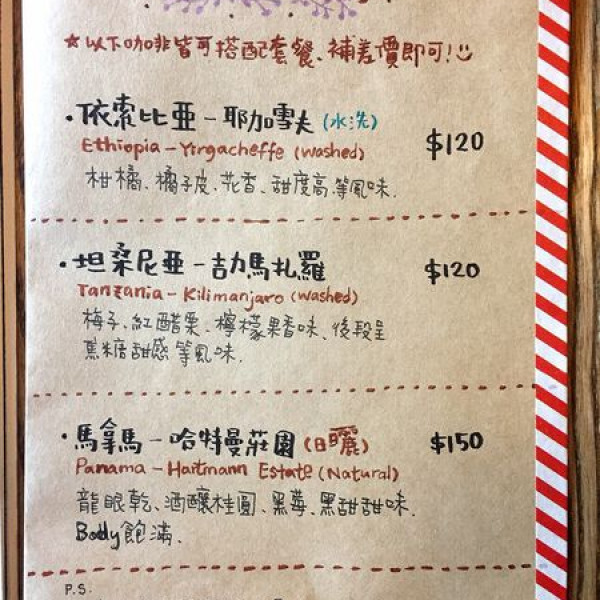 ★以下咖啡皆可搭配套餐、補差價即可!
・依索比亞-耶加雪夫(水洗) $120
Ethiopia-Yirgacheffe (washed)
柑橘、橘子皮、花香、甜度高等風味.
・坦桑尼亞-吉力馬札羅 $120
Tanzania-Kilimanjaro (washed)
梅子、紅醋栗、檸檬果香味、後段呈
焦糖甜感等風味.
・馬拿馬-哈特曼莊園(日曬) $150
Panama-Hartmann Estate (Natural)
龍眼乾、酒釀桂圓、黑莓、黑甜甜味.
Body飽滿.
P.S.